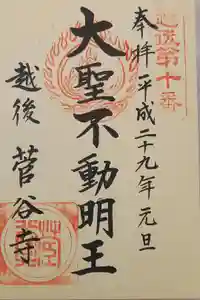 奉拝 平成二十九年 元旦
大聖不動明王
越後 菅谷寺